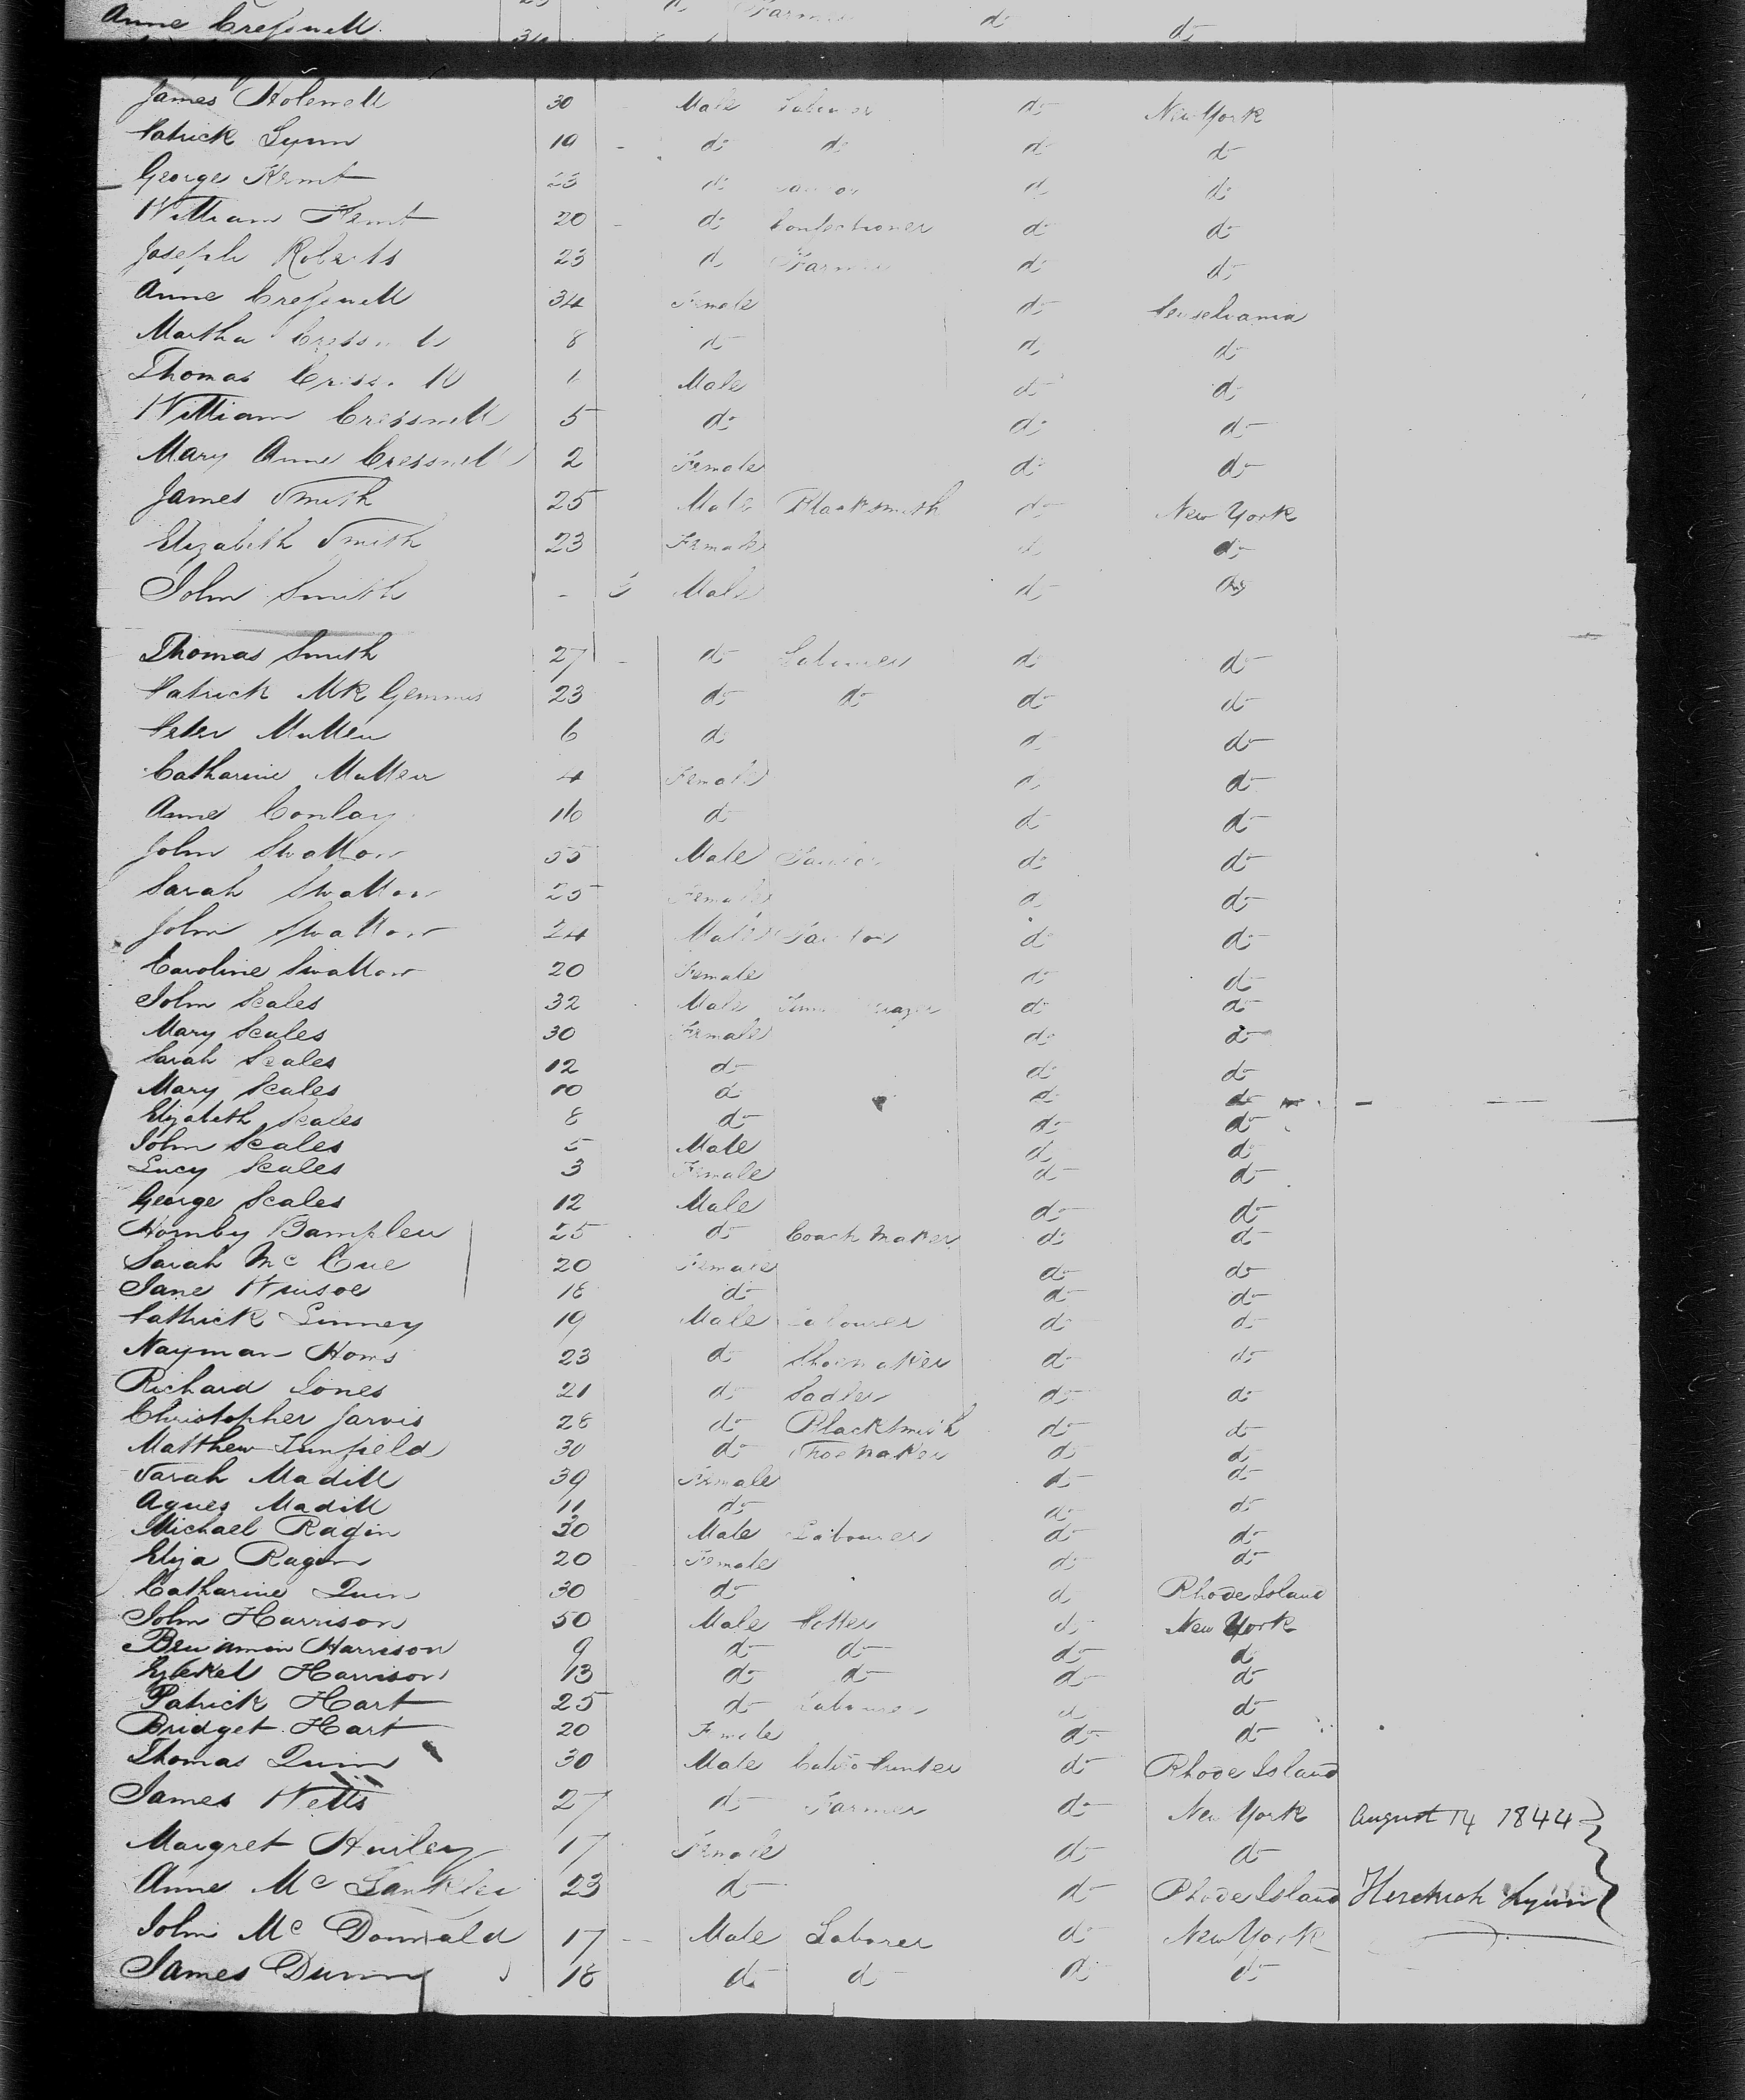 Anne Cresswell d Farmer d do
James Holewell 30 Male Labourer do New York
Patrick Lynn 19 do do do do
George Kemt 23 do do do
William Kemt 20 do Confectioner do do
Joseph Roberts 23 do Farmer do do
Anne Cresswell 34 Female do Penselvania
Martha Cresswell 8 do do do
Thomas Cresswell 6 Male do do
William Cresswell 5 do do do
Mary Anne Cresswell 2 Female do do
James Smith 25 Male Blacksmith do New York
Elizabeth Smith 23 Female do do
John Smith - Male do do
Thomas Smith 27 - do Labourer do do
Patrick 23 do do do do
Peter Mullen 6 do do do
Catharine Mullen 4 Female do do
Anne Conlay 16 do do do
John Swallow 55 Male do do
Sarah Swallow 25 Female do do
John Swallow 24 Male do do
Caroline Swallow 20 Female do do
John Scales 32 Male do do
Mary Scales 30 Female do do
Sarah Scales 12 do do do
Mary Scales 10 do do do
Elizabeth Scales 8 do do do
John Scales 5 Male do do
Lucy Scales 3 Female do do
George Scales 12 Male do do
Hornby Bampleu 25 do Coach Maker do do
Sarah Mc Cue 20 Female do do
Jane Winsoe 18 do do do
Pattrick Linney 19 Male Labourer do do
Nayman Hows 23 do Shoemaker do do
Richard Jones 21 do Sadler do do
Christopher Jarvis 28 do Blacksmith do do
Matthew Lunfield 30 do Shoe Maker do do
Sarah Madill 39 Female do do
Agnes Madill 11 do do do
Michael Ragin 30 Male Labourer do do
Eliza Ragin 20 Female do do
Catharine Quin 30 do do Rhode Island
John Harrison 50 Male Potter do New York
Benjamin Harrison 9 do do do do
Ezekel Harrison 13 do do do do
Patrick Hart 25 do Labourer do do
Bridget Hart 20 Female do do
Thomas Quin 30 Male Calico Printer do Rhode Island
James Wells 27 do Farmer do New York August 14 1844
Margret Hurley 17 Female do do
Anne Mc 23 do do Rhode Island Lynn
John Mc Donnald 17 - Male Laborer do New York
James Dunn 18 do do do do